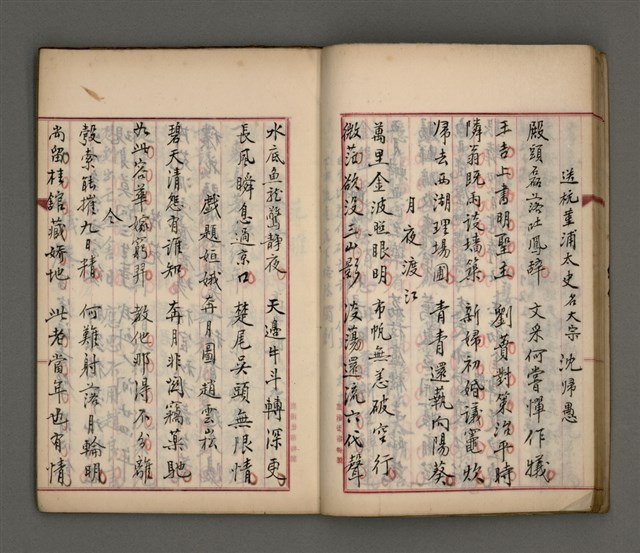 送杭菫浦太史名大宗 沈歸愚
殿頭磊落吐鳳辭 文采何嘗憚作犧
王吉上書明聖主 劉蕡對策治平時
隣翁既雨談墻築 新婦初婚議竈炊
歸去西湖理場圃 青青還執向陽葵
月夜渡江
萬里金波照眼明 布帆無恙破空行
微茫欲沒三山影 浩蕩還流六代聲
水底魚龍驚靜夜 天邊牛斗轉深更
長風瞬息過京口 楚尾吳頭無限情
戲題姮娥奔月圖 趙雲崧
碧天清怨有誰知 奔月非關竊藥馳
如此容華嫁窮羿 教他那得不分離
仝
彀索能摧九日精 何難射落月輪明
尚留桂舘藏嬌地 此老當年也有情